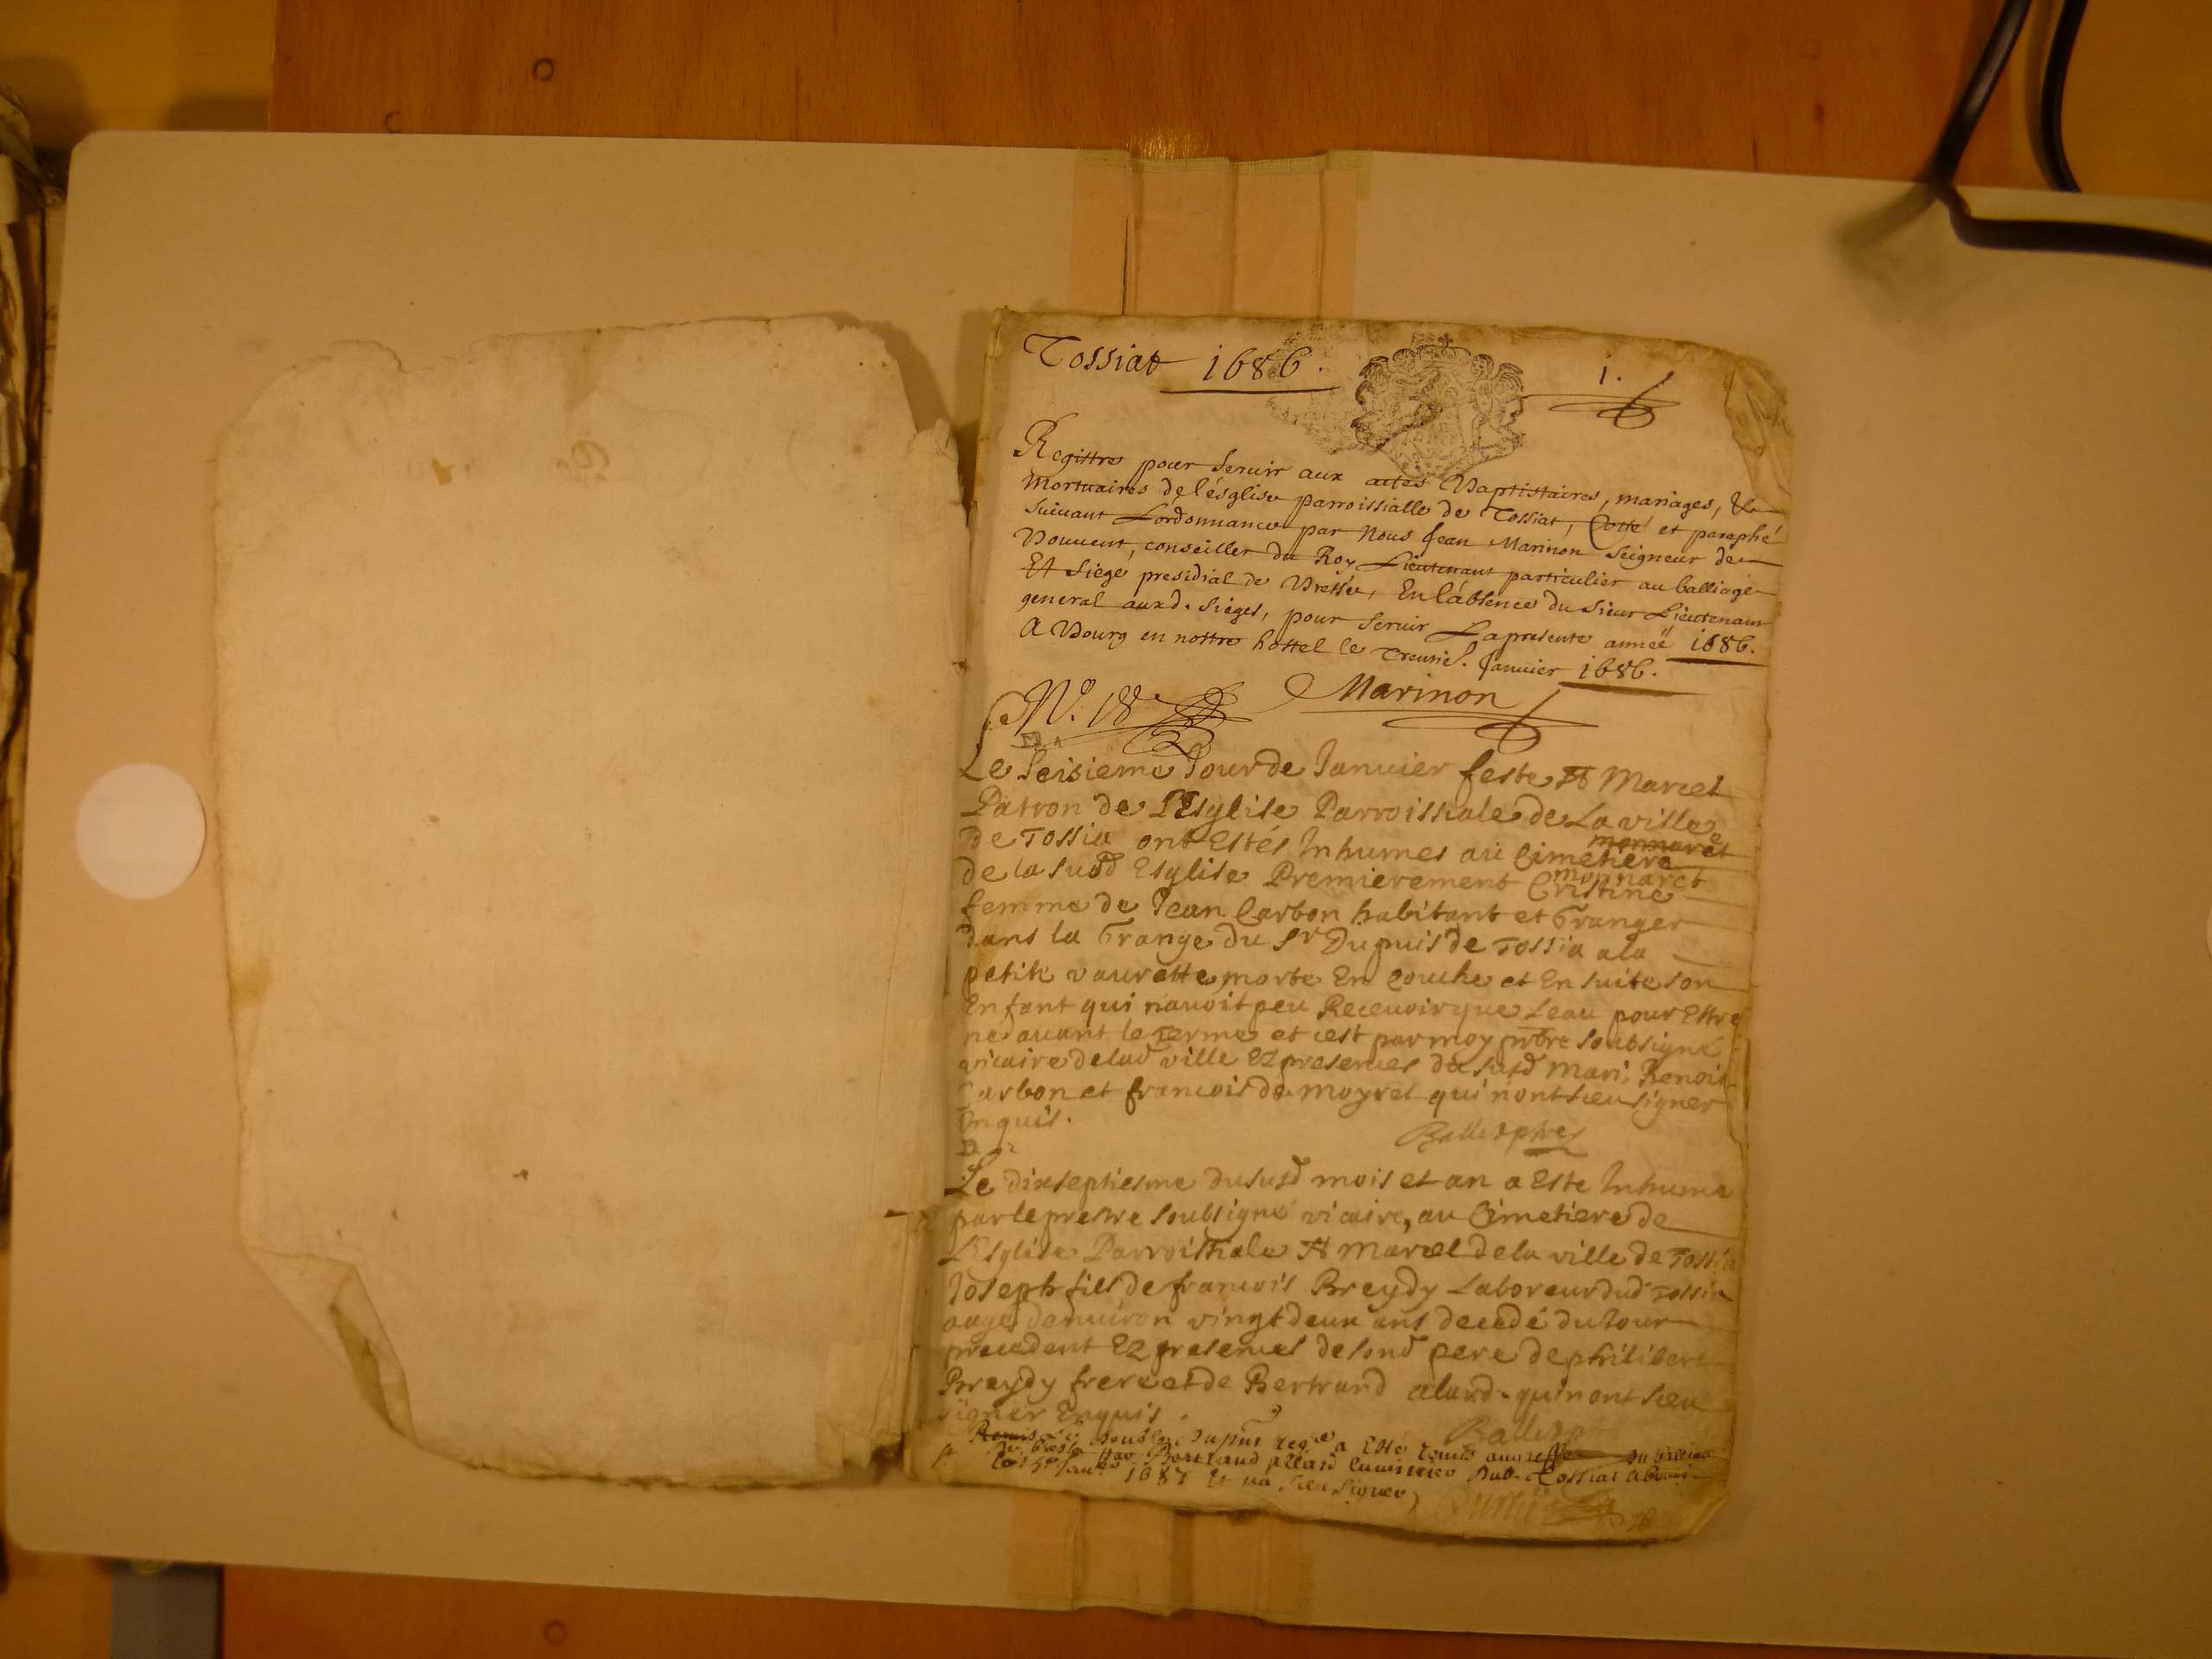 Tossiat 1686. 1.
Registre pour seruir aux actes Baptistaires, mariages, &
mortuaires de l'ésglise parroissialle de Tossiat, Cotté et paraphé
suiuant L'ordonnance par Nous Jean Marinon Seigneur de
Bouuent, conseiller du Roy Lieutenant particulier au balliage
Et siege presidial de Bresse, En l'absence du sieur Lieutenant
general auxd. sieges, pour seruir La presente année 1686.
A Bourg en nostre hostel le Janvier 1686.
Marinon
No. 18
Le seisieme Jour de Januier feste St Marcel
Patron de L'Esglise Parroissiale de La ville
de Tossia ont Estés Inhumes au Cimetiere
monnaret
de la susd Esglise Premierement Cristine
monnaret
femme de Jean Carbon habitant et Granger
dans la Grange du Sr Dupuis de Tossia a la
petite vaurette morte En couche et En suite son
Enfant qui nauoit peu Receuoir que Leau pour Estre
né auant le Terme et cest par moy prbre soubsigné
vicaire de lad ville Ez presences du susd mari, Benoit
Carbon et francois de moyret qui nont sceu signer
Enquis.
Le dixseptiesme du susd mois et an a Este Inhume
par le prestre soubsigné vicaire, au Cimetiere de
L'Esglise Parroissiale St Marcel de la ville de Tossia
Joseph fils de francois Breydy Laboreur dud Tossia
aagé denuiron vingt deux ans decedé du Jour
precedent Ez presences de sond pere de philibert
Breydy frere et de Bertrand alard qui nont sceu
signer Enquis
Le double du pnt reg.re a Esté remis au greffe du balliage
de par Bertrand allard luminier dud. Tossiat
le 15 Jan.er 1687 & na sceu signer